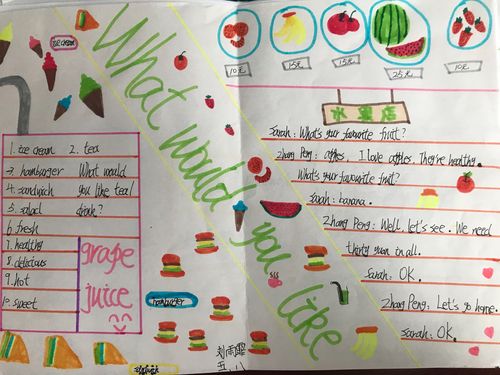 ice cream
What would you like
10元
15元
15元
25元
10元
水果店
Sarah: What's your favourite fruit?
Zhang Peng: apples. I love apples. They're healthy.
What's your favourite fruit?
Sarah: banana.
Zhang Peng: Well, let's see. We need
thirty yuan in all.
Sarah: OK.
Zhang Peng: Let's go home.
Sarah: OK.
1. ice cream 2. tea
3. hamburger What would
4. sandwich you like tea/
5. salad drink?
6. fresh
7. healthy
8. delicious
9. hot
10. sweet
grape
juice
hamburger